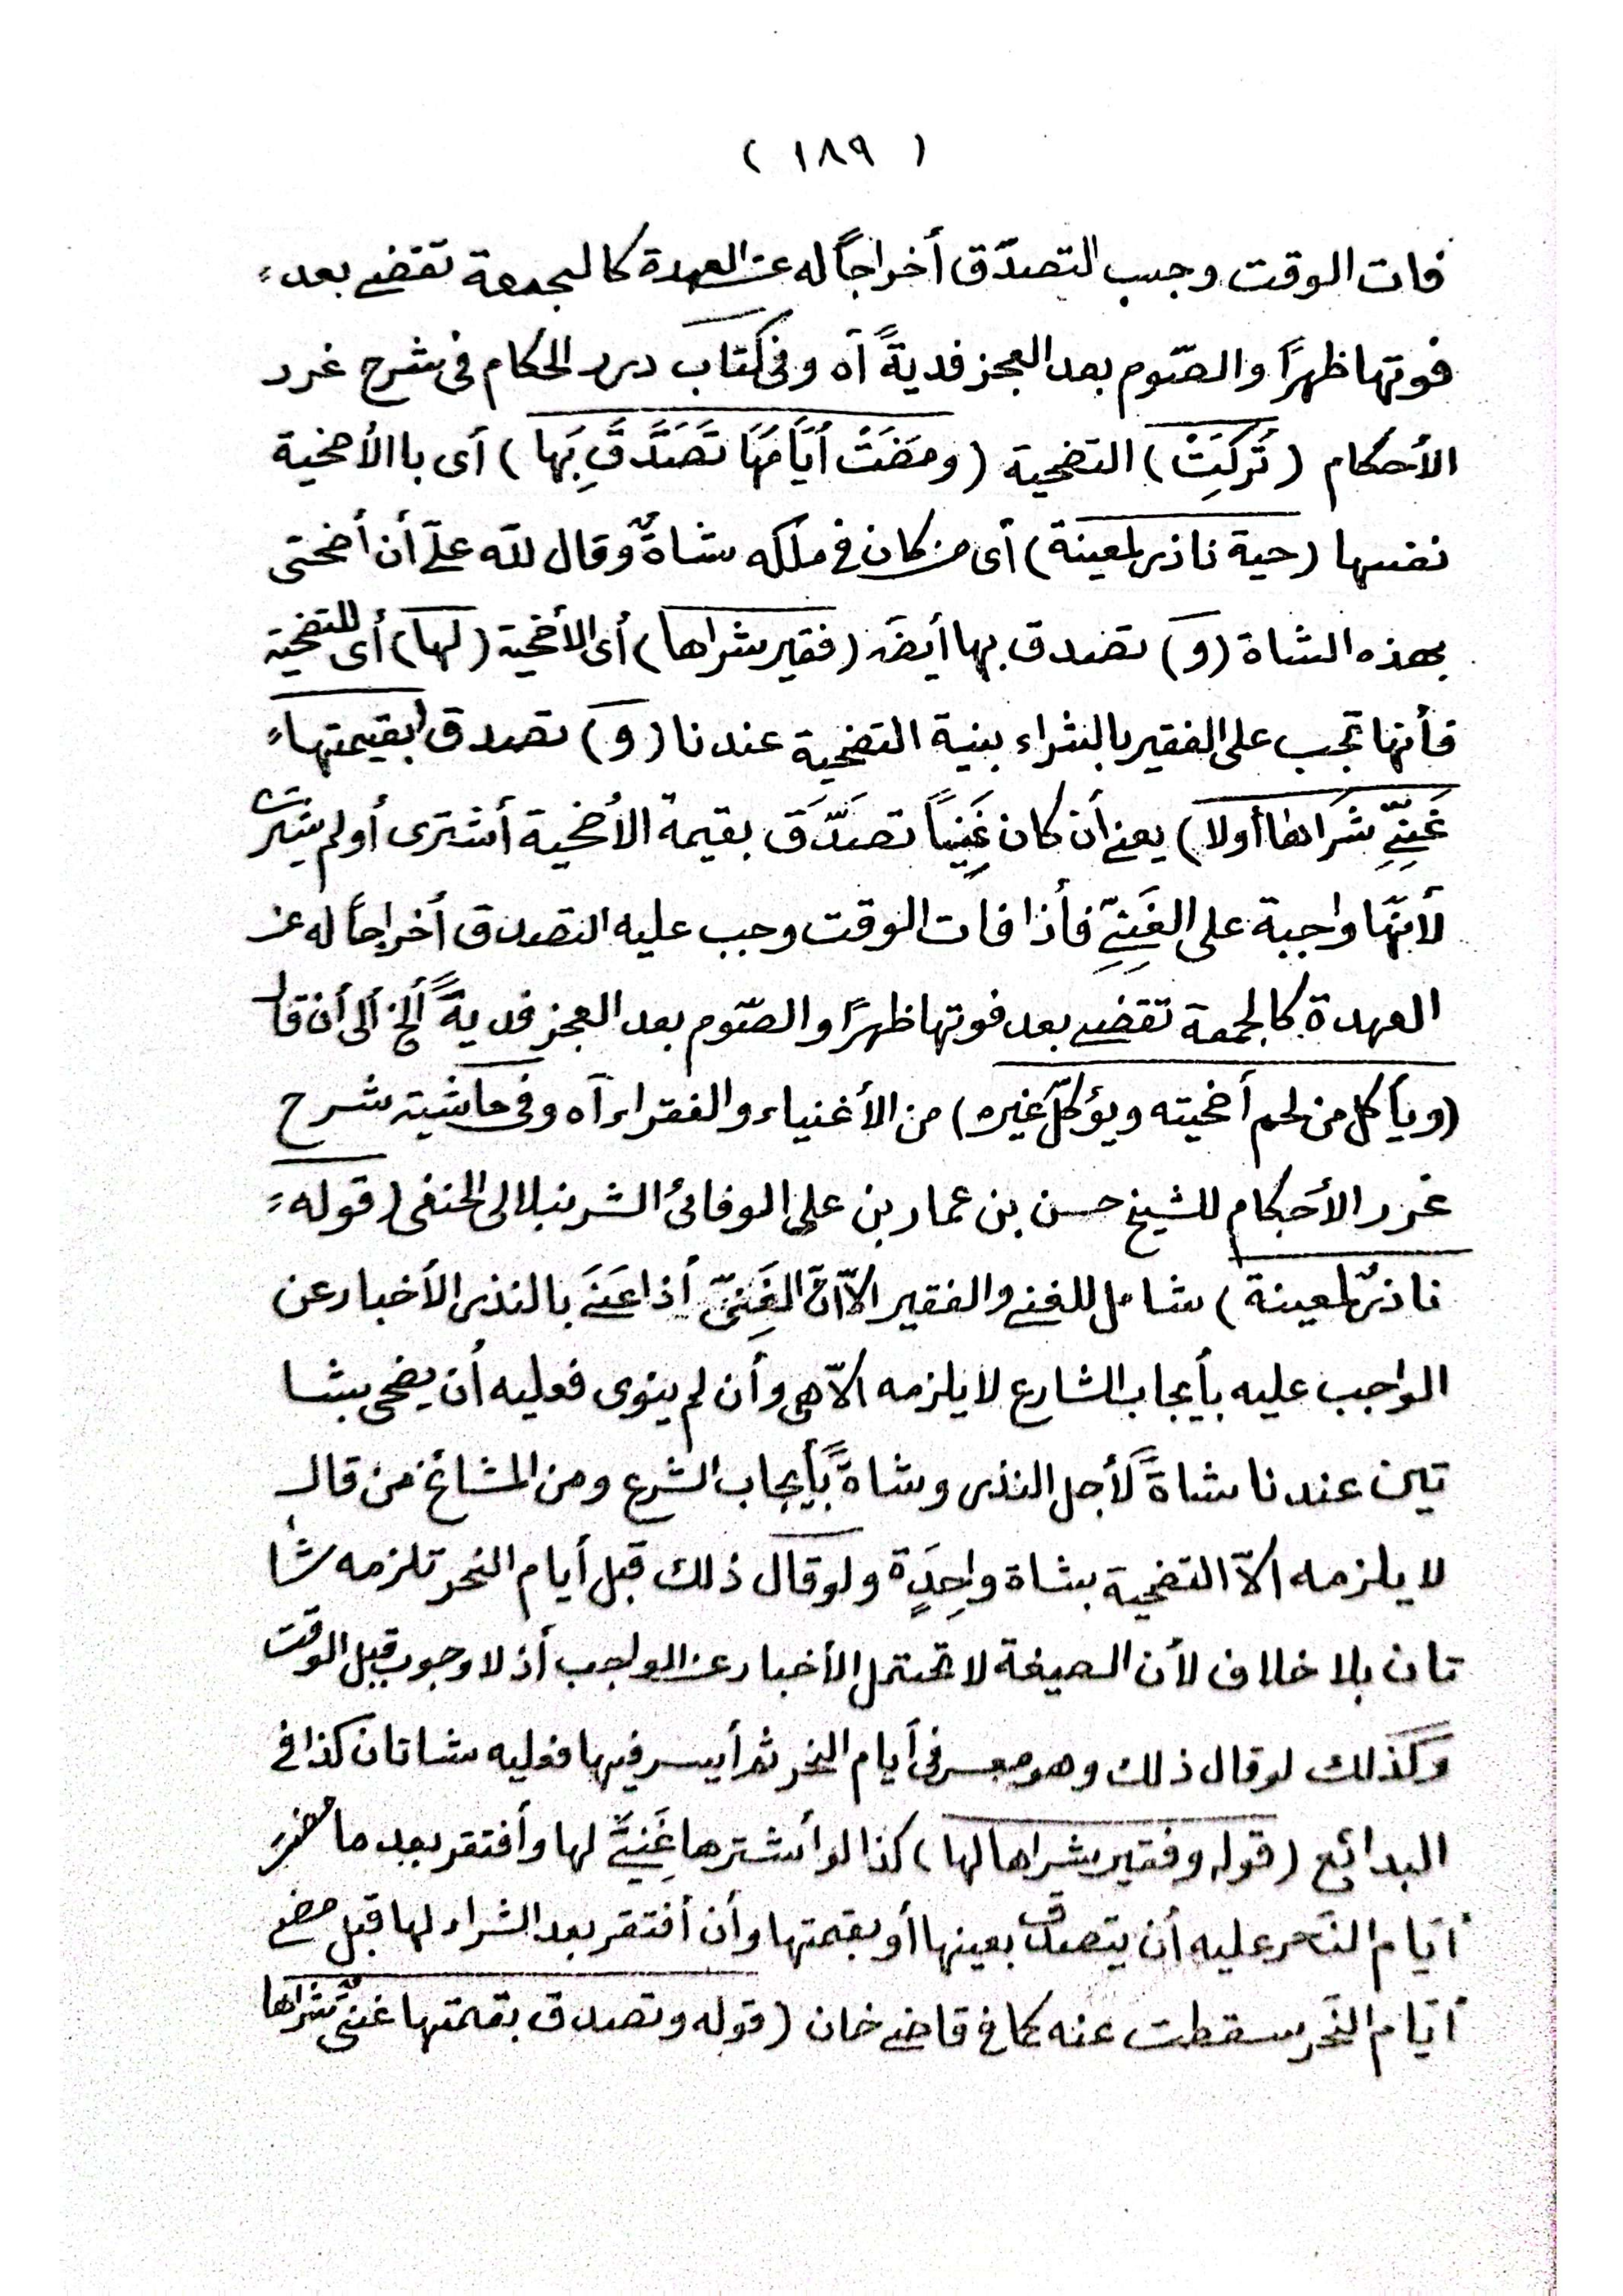 ( ١٨٩ )
فات الوقت وجب التصدّق أخراجاً له عن العهدة كالجمعة تقضى بعد
فوتها ظهرًا والصّوم بعد العجز فديةً آه وفى كتاب درر الحكام فى شرح غرر
الأحكام (تُرِكَتْ) التضحية (ومَضَتْ أيَّامُهَا تَصَدَّقَ بِهَا) أى باالأضحية
نفسها (حية ناذر لمعينة) أى من كان فى ملكه شاةٌ وقال لله علىّ أن أضحتى
بهذه الشاة (و) تصدق بها أيضَا (فقير شراها) أى الأضحية (لها) أى للتضحية
فأنها تجب على الفقير بالشراء بنية التضحية عندنا (و) تصدق (بقيمتها
غَنِىّ شَرَاها أولا) يعنى أن كان غَنِياً تصَدَّقَ بقيمة الأضحية أشترى أو لم يشتر
لأنّها واجبة على الغَنِىِّ فأذا فات الوقت وجب عليه التصدق أخراجاً له عن
العهدة كالجمعة تقضى بعد فوتها ظهرًا والصّوم بعد العجز فديةً ألخ ألى أن قال
(ويأكل من لحم أضحيته ويؤكلّ غيره) من الأغنياء والفقراء آه وفى حاشية شرح
غرر الأحكام للشيخ حسن بن عمار بن على الوفائى الشرنبلالى الحنفى (قوله
ناذرٌ لمعينة) شامل للغنى والفقير الاّ انّ الغَنِىّ أذا عَنَى بالنذر الأخبار عن
الواجب عليه بأيجاب الشارع لا يلزمه الاّ هى وأن لم ينوى فعليه أن يضحى بشا
تين عندنا شاةً لأجل النذر وشاةً بأيجاب الشرع ومن المشائخ من قال
لا يلزمه الاّ التضحية بشاة واحِدَةٍ ولو قال ذلك قبل أيام النحر تلزمه شا
تان بلا خلاف لأن الصيغة لا تحتمل الأخبار عن الواجب أذ لا وجوب قبل الوقت
وكذلك لو قال ذلك وهو معسر فى أيام النحر ثم أيسر فيها فعليه شاتان كذا فى
البدائع (قوله وفقير شراها لها) كذا لو أشترها غَنِىٌّ لها وأفتقر بعد ما مضى
أيّام النّحر عليه أن يتصدق بعينها أو بقيمتها وأن أفتقر بعد الشراء لها قبل مضى
أيّام النّحر سقطت عنه كما فى قاضى خان (قوله وتصدق بقيمتها غنىٌّ شراها